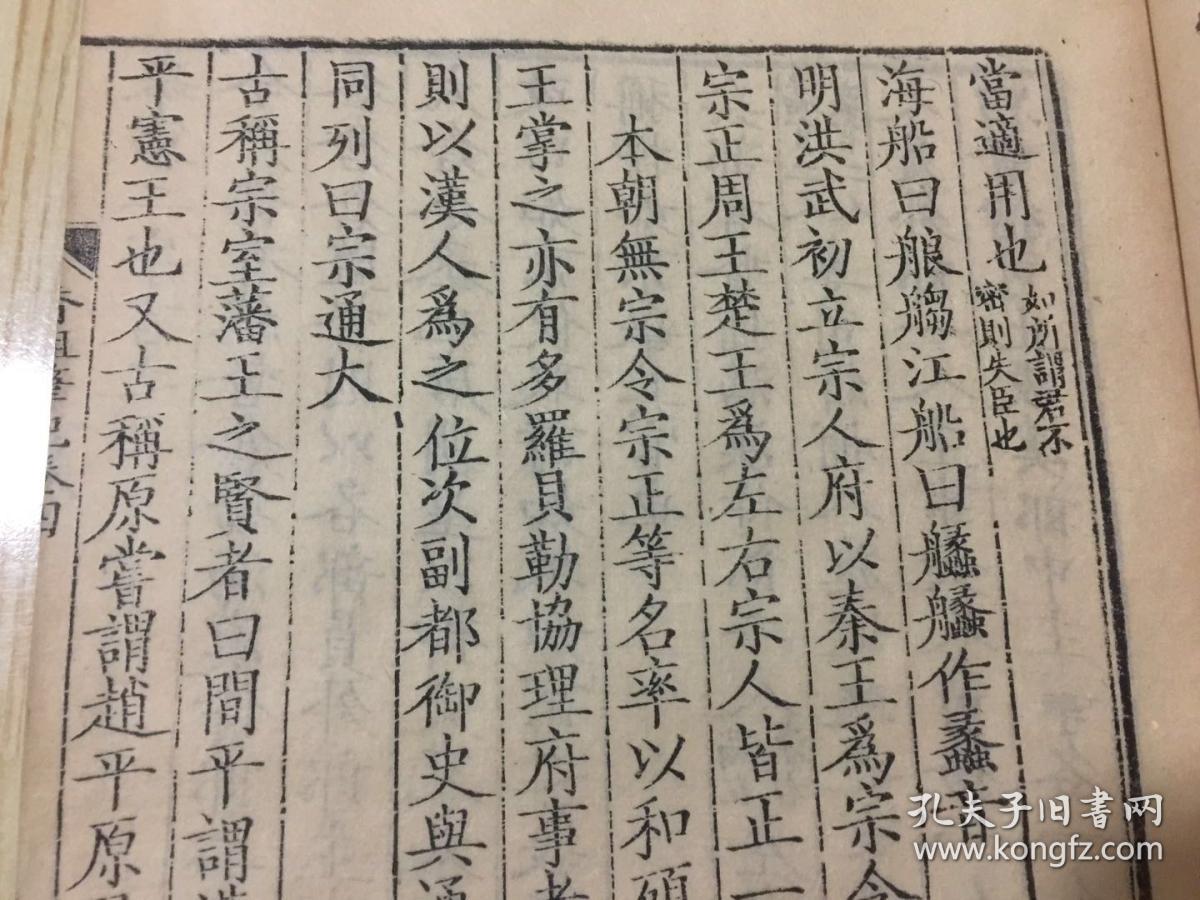 當適用也如所謂君不密則失臣也
海船曰艆䑳江船曰艫艫作蠡音
明洪武初立宗人府以秦王為宗令
宗正周王楚王為左右宗人皆正一
本朝無宗令宗正等名率以和碩
王掌之亦有多羅貝勒協理府事者
則以漢人為之位次副都御史與通
同列曰宗通大
古稱宗室藩王之賢者曰間平謂
平憲王也又古稱原嘗謂趙平原
香祖筆記卷四
孔夫子旧書网
www.kongfz.com